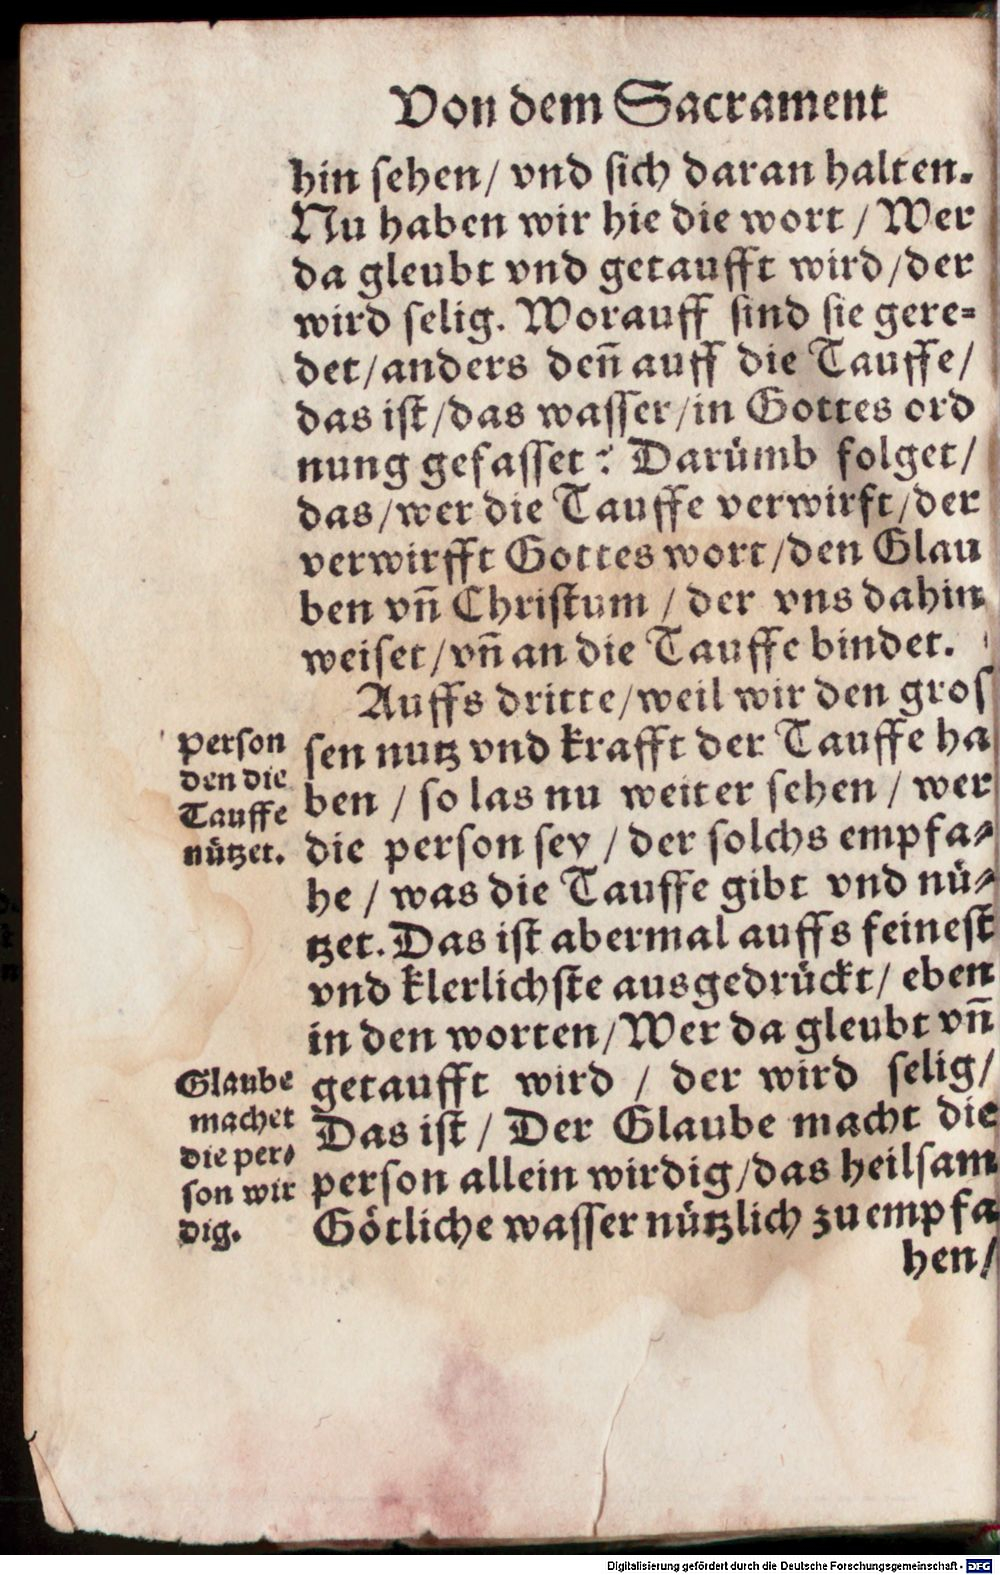 Von dem Sacrament
hin sehen/ vnd sich daran halten.
Nu haben wir hie die wort / Wer
da gleubt vnd getaufft wird/der
wird selig. Worauff sind sie gere=
det/anders deñ auff die Tauffe/
das ist/das wasser/in Gottes ord
nung gefasset? Darümb folget/
das/wer die Tauffe verwirft/der
verwirfft Gottes wort/den Glau
ben vñ Christum / der vns dahin
weiset/vñ an die Tauffe bindet.
Auffs dritte/weil wir den gros
sen nutz vnd krafft der Tauffe ha
ben / so las nu weiter sehen / wer
die person sey / der solchs empfa=
he / was die Tauffe gibt vnd nü=
tzet. Das ist abermal auffs feinest
vnd klerlichste ausgedrückt/ eben
in den worten/Wer da gleubt vñ
getaufft wird / der wird selig/
Das ist / Der Glaube macht die
person allein wirdig/das heilsam
Götliche wasser nützlich zu empfa
hen/
person
den die
Tauffe
nützet.
Glaube
machet
die per=
son wir
dig.
Digitalisierung gefördert durch die Deutsche Forschungsgemeinschaft - DFG